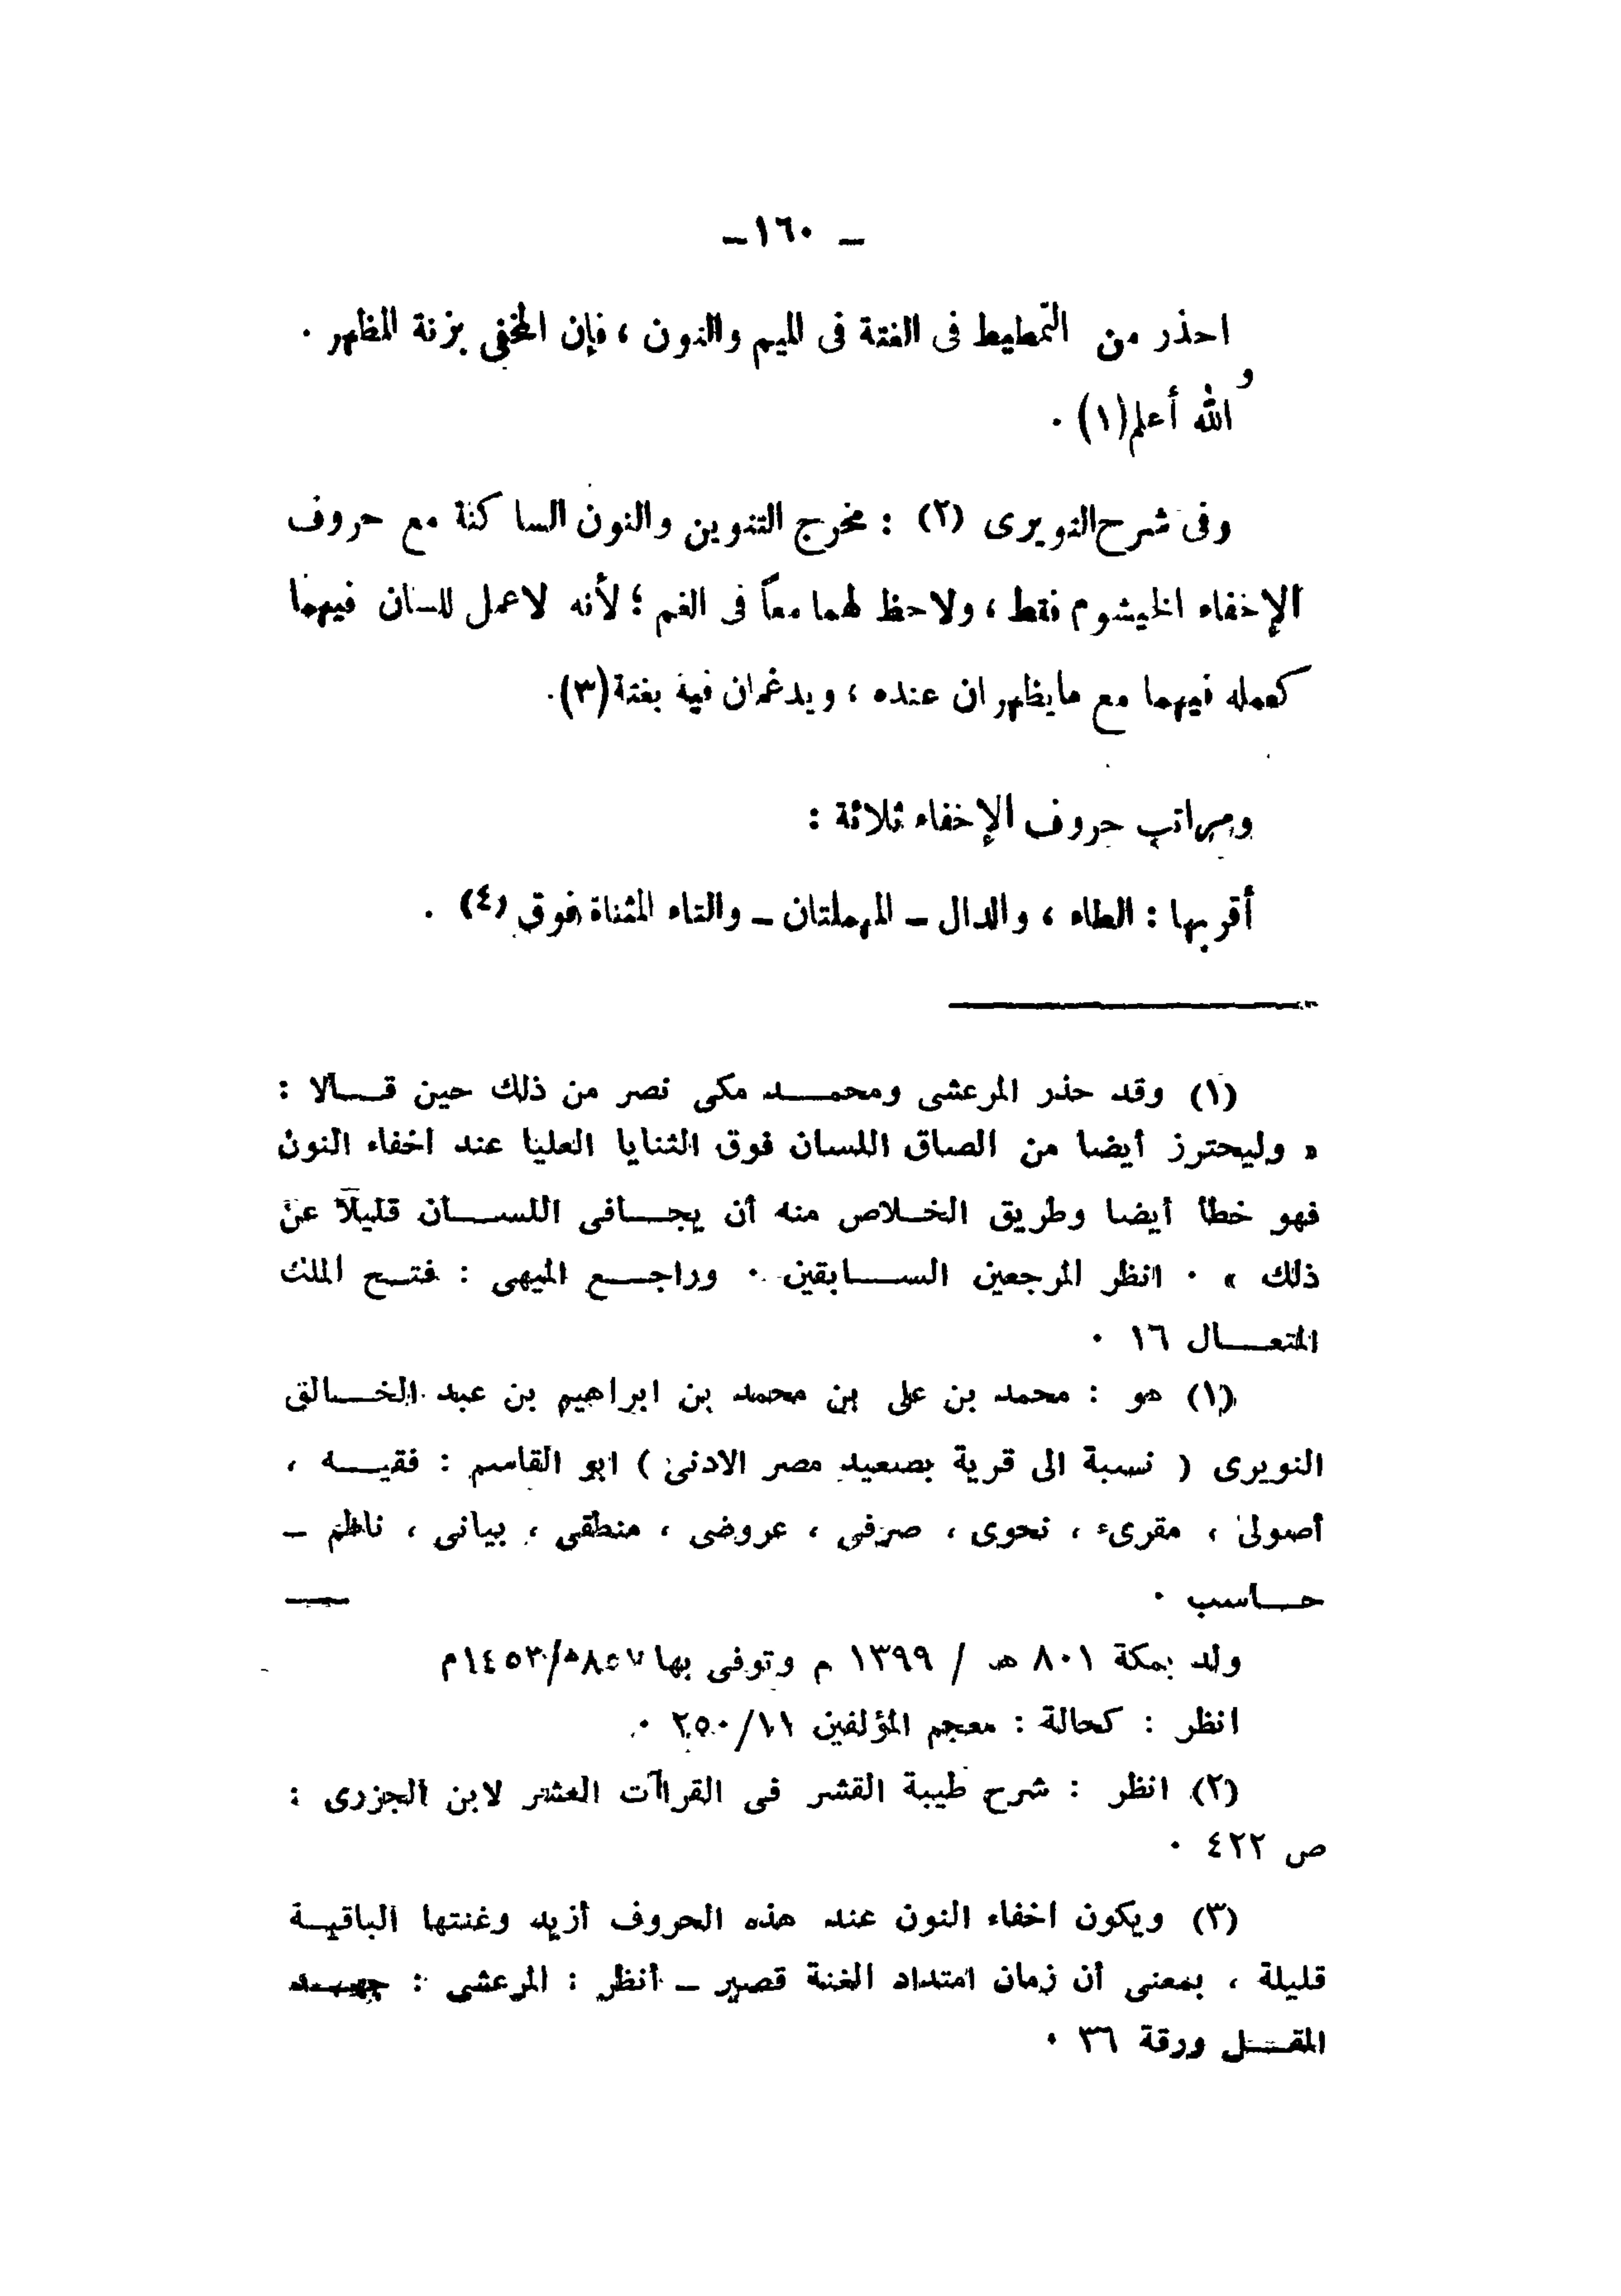 ـ ١٦٠ ـ
احذر من التمطيط فى الغنة فى الميم والنون ، فإن المخفى بزنة المظهر .
و
الله أعلم(١) .
وفى شرح النويرى (٢) : مخرج التنوين والنون الساكنة مع حروف
الإخفاء الخيشوم فقط ، ولاحظ لهما معاً فى الفم ؛ لأنه لاعمل للسان فيهما
كعمله فيهما مع مايظهران عنده ، ويدغمان فيه بغنة(٣).
ومراتب حروف الإخفاء ثلاثة :
أقربها : الطاء ، والدال ـ المهملتان ـ والتاء المثناة فوق (٤) .
(١) وقد حذر المرعشى ومحمد مكى نصر من ذلك حين قالا :
« وليحترز أيضا من الصاق اللسان فوق الثنايا العليا عند اخفاء النون
فهو خطأ أيضا وطريق الخلاص منه أن يجافى اللسان قليلا عن
ذلك » . انظر المرجعين السابقين . وراجع الميهى : فتح الملك
المتعال ١٦ .
(١) هو : محمد بن على بن محمد بن ابراهيم بن عبد الخالق
النويرى ( نسبة الى قرية بصعيد مصر الادنى ) ابو القاسم : فقيه ،
أصولى ، مقرىء ، نحوى ، صرفى ، عروضى ، منطقى ، بيانى ، ناظم ـ
حاسب .
ولد بمكة ٨٠١ هـ / ١٣٩٩ م وتوفى بها ٨٥٧هـ/١٤٥٣م
انظر : كحالة : معجم المؤلفين ١١/٢٥٠ .
(٢) انظر : شرح طيبة القشر فى القراآت العشر لابن الجزرى :
ص ٤٢٢ .
(٣) ويكون اخفاء النون عند هذه الحروف أزيد وغنتها الباقية
قليلة ، بمعنى أن زمان امتداد الغنة قصير ـ أنظر : المرعشى : جهد
المقل ورقة ٣٦ .